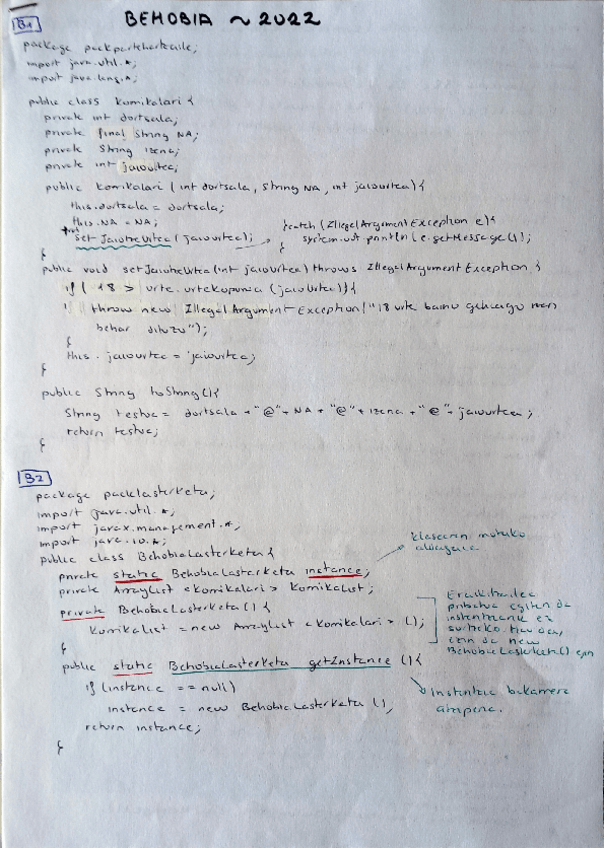 BEHOBIA ~ 2022
B1
package packpartehartzaile;
import java.util.*;
import java.lang.*;
public class Komikalari {
private int dortsala;
private final String NA;
private String izena;
private int jaiourtea;
public Komikalari (int dortsala, String NA, int jaiourtea){
this.dortsala = dortsala;
this.NA = NA;
try{ set JaiotzeUrtea (jaiourtea);
}catch (IllegalArgumentException e){
system.out.println (e.getMessage());
}
}
public void setJaiotzeUrtea (int jaiourtea) throws IllegalArgumentException {
if ( 18 > urte.urteKopurua (jaiourtea)){
throw new IllegalArgumentException("18 urte baino gehiago izan
behar dituzu");
}
this.jaiourtea = jaiourtea;
}
public String toString(){
String testua = dortsala + "@" + NA + "@" + izena + "@" + jaiourtea ;
return testua;
}
B2
package packlasterketa;
import java.util.*;
import javax.management.*;
import java.io.*;
public class BehobiaLasterketa {
klasearen motako
aldagaia.
private static BehobiaLasterketa instance;
private ArrayList <Komikalari> KomikaList;
private BehobiaLasterketa () {
KomikaList = new ArrayList <Komikalari> ();
}
Eraikitzailea
pribatua egiten da
instantziarik ez
sortzeko
ezin da new
BehobiaLasterketa() egin
public static BehobiaLasterketa getInstance (){
if (instance == null)
instance = new BehobiaLasterketa ();
return instance;
}
instantzia bakarra